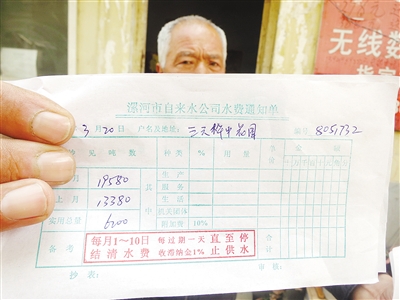 无线数
漯河市自来水公司水费通知单
3月20日 户名及地址: 编号 8051732
见吨数 种类 % 用量
月 19580 其 生产
服务
上月 13380 生活
中 机关团体
实用总量 6200 附加费 10%
备考 每月1～10日 每过期一天 直至停
结清水费 收得纳金1% 止供水
抄表: 审核: